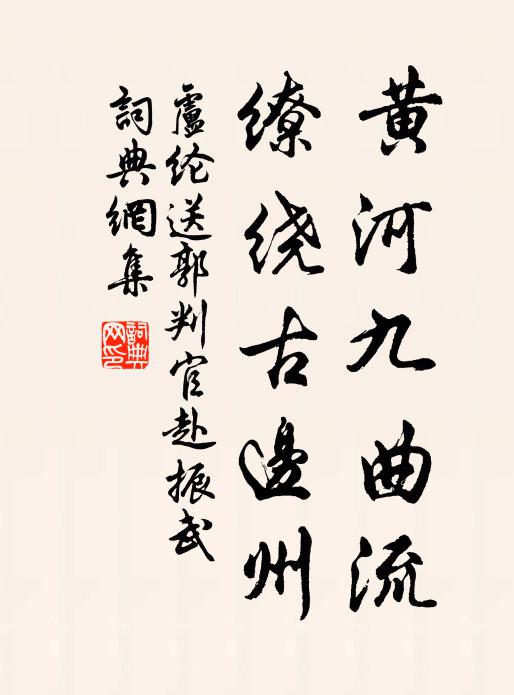 黄河九曲流
缭绕古邊州
盧纶送郭判官赴振武
詞典網集
詞典
网印